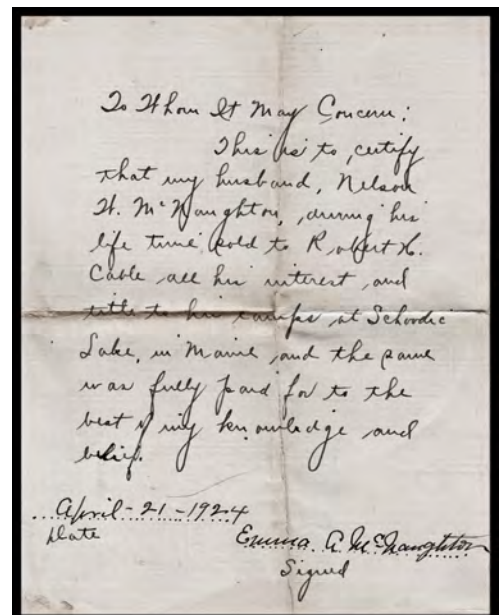 To Whom It May Concern:
This is to certify
that my husband, Nelson
H. McNaughton, during his
life time sold to Robert H.
Cable all his interest and
title to his camps at Schoodic
Lake, in Maine and the same
was fully paid for to the
best of my knowledge and
belief.
April-21-1924
Date
Emma A McNaughton
Signed